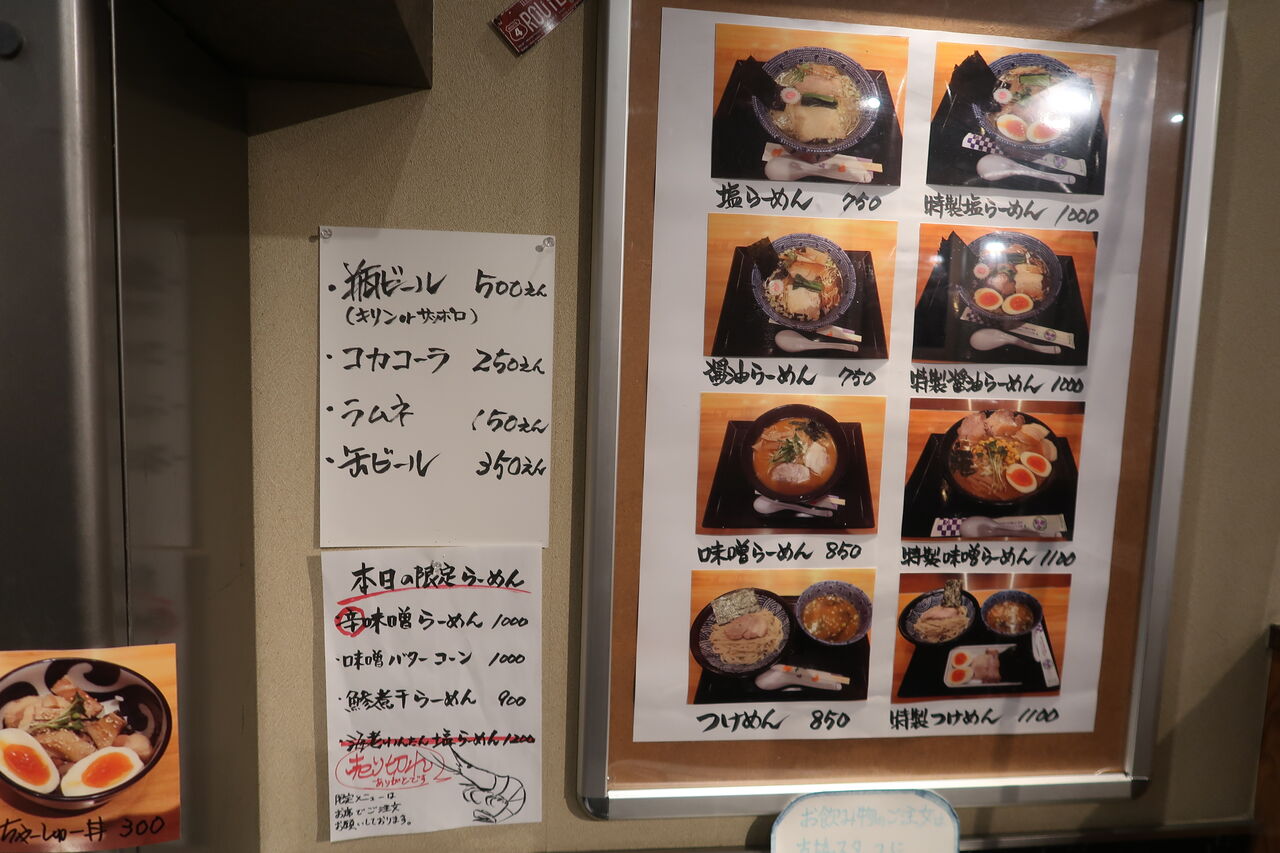 4
ROUTE
・瓶ビール 500えん
(キリン or サッポロ)
・コカコーラ 250えん
・ラムネ 150えん
・缶ビール 350えん
本日の限定らーめん
・辛味噌らーめん 1000
・味噌バターコーン 1000
・鯵煮干らーめん 900
・海老わんたん塩らーめん 1200
売り切れ
ありがとです
限定メニューは
お席でご注文
お願いしております。
ちゃーしゅー丼 300
塩らーめん 750
特製塩らーめん 1000
醤油らーめん 750
特製醤油らーめん 1000
味噌らーめん 850
特製味噌らーめん 1100
つけめん 850
特製つけめん 1100
お飲み物のご注文は